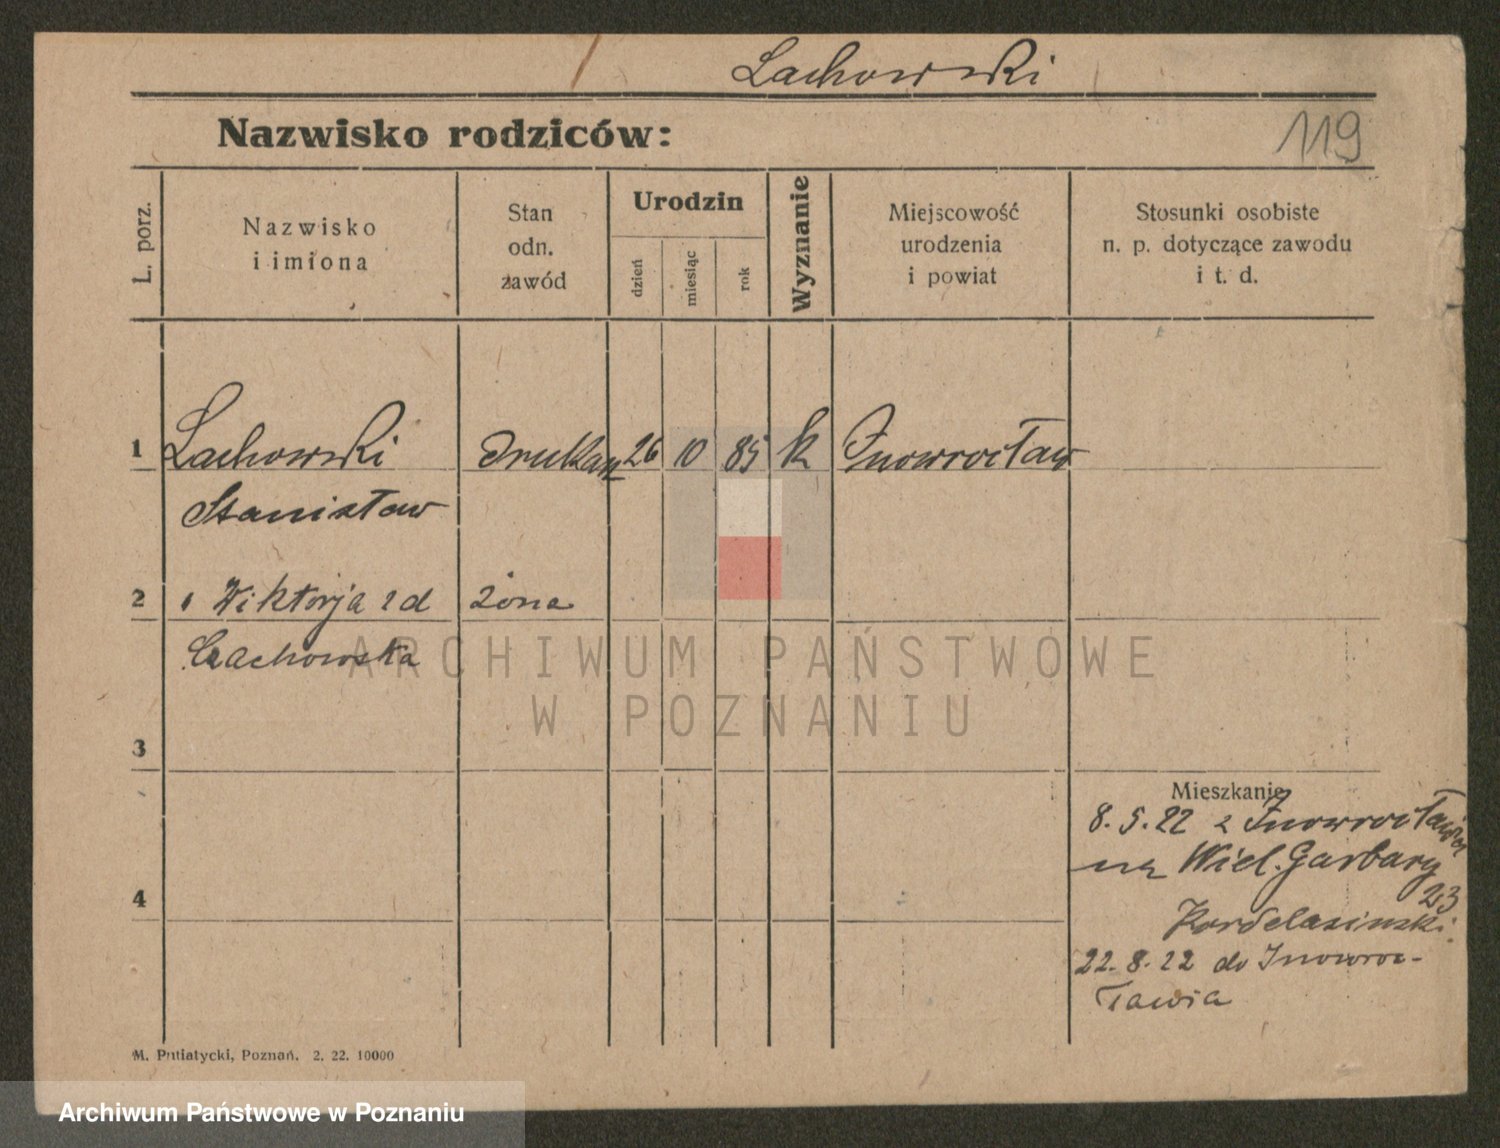 Lachowski
Nazwisko rodziców:
119
L. porz.
Nazwisko
i imiona
Stan
odn.
zawód
Urodzin
dzień
miesiąc
rok
Wyznanie
Miejscowość
urodzenia
i powiat
Stosunki osobiste
n. p. dotyczące zawodu
i t. d.
1 Lachowski drukarz 26 10 85 k Inowrocław
Stanisław
2 Wiktorja żona
Lachowska
ARCHIWUM PAŃSTWOWE
W POZNANIU
3
Mieszkanie
8.5.22 z Inowrocławia
na Wiel. Garbary
23
4
22.8.22 do Inowroc-
ławia
M. Putiatycki, Poznań. 2. 22. 10000
Archiwum Państwowe w Poznaniu